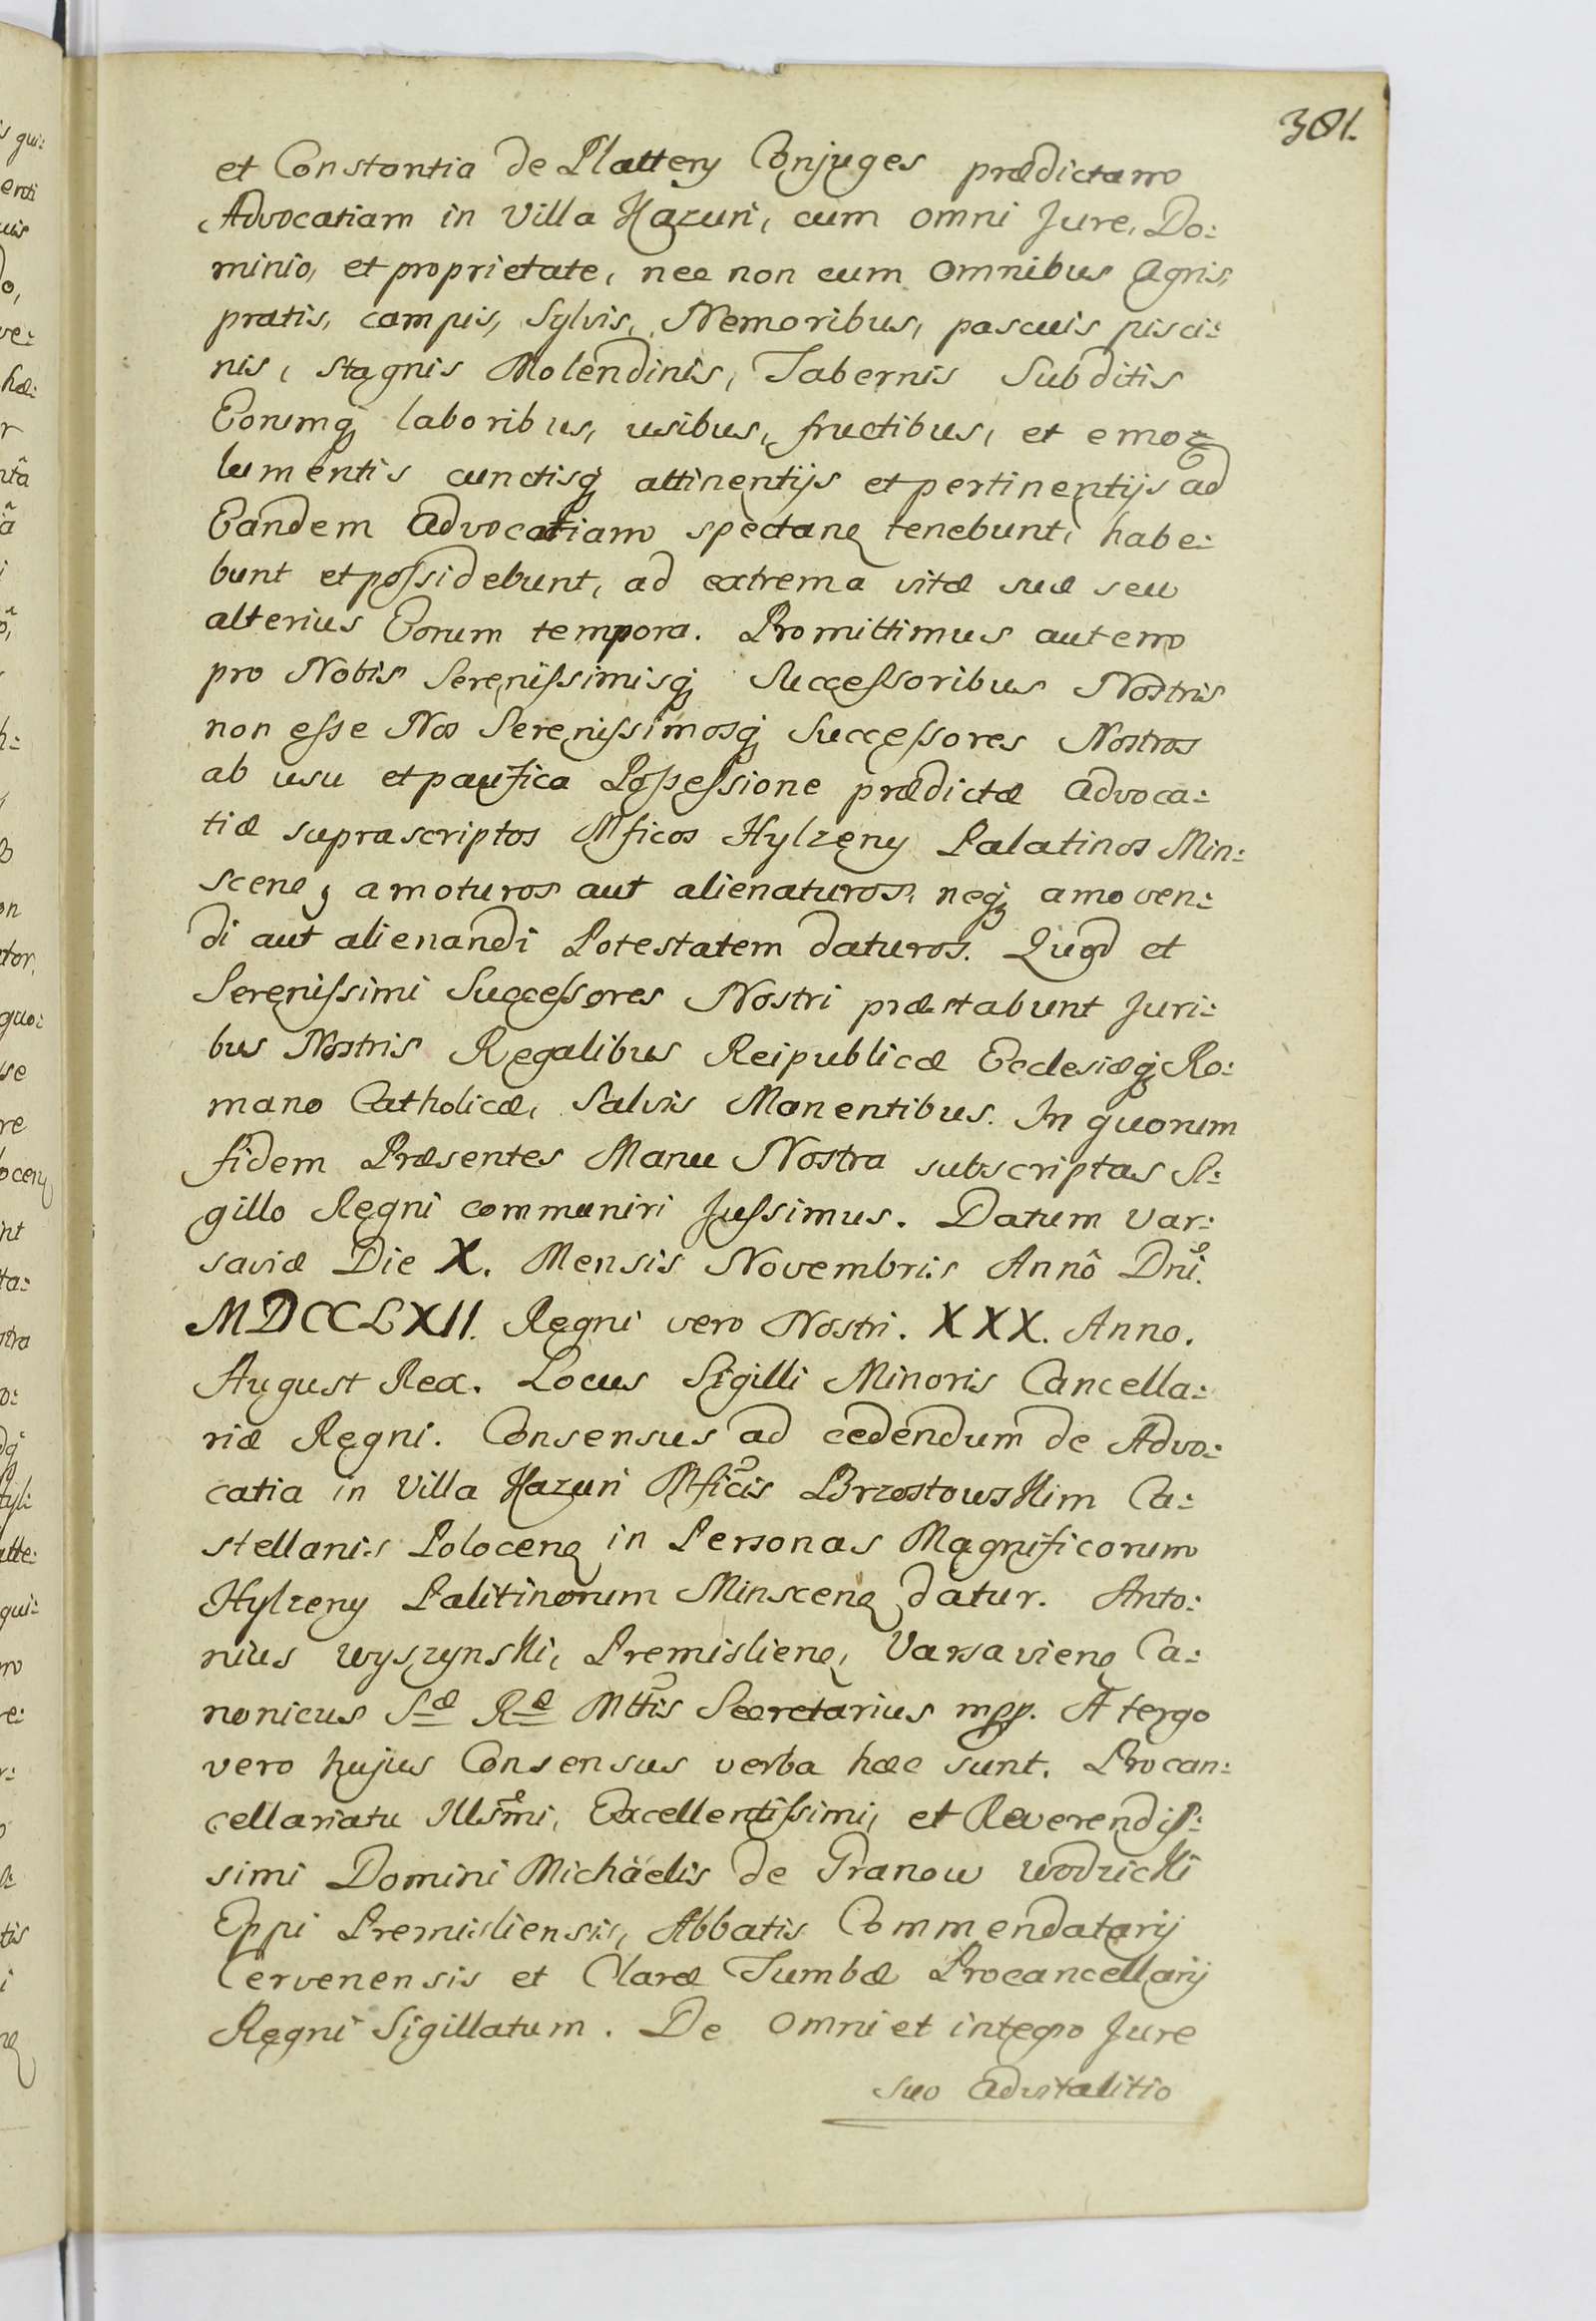 381.
et Constantia de Plattery Conjuges prædictam
Advocatiam in Villa Hazuri, cum omni Jure, Do:
minio, et proprietate, nec non cum omnibus Agris,
pratis, campis, Sylvis, Nemoribus, pascuis pisci:
nis, stagnis Molendinis, Tabernis Subditis
Eorumq; laboribus, usibus, fructibus, et emo:
lumentis cunctisq; attinentijs et pertinentijs ad
Eandem Advocatiam spectanę tenebunt, habe:
bunt et possidebunt, ad extrema vitæ suæ seu
alterius Eorum tempora. Promittimus autem
pro Nobis Serenissimisq; Successoribus Nostris
non esse Nos Serenissimosq; Successores Nostros
ab usu et paufica Possessione prædictæ Advoca:
tiæ suprascriptos Mficos Hylzeny Palatinos Min:
scenę, amoturos aut alienaturos, neq; amoven:
di aut alienandi Potestatem daturos. Quod et
Serenissimi Successores Nostri præstabunt Juri:
bus Nostris Regalibus Reipublicæ Ecclesiæq; Ro:
mano Catholicæ, Salvis Manentibus. In quorum
fidem Præsentes Manu Nostra subscriptas Si:
gillo Regni communiri Jussimus. Datum Var:
saviæ Die X. Mensis Novembris Annô Dni.
MDCCLXII. Regni vero Nostri. XXX. Anno.
August Rex. Locus Sigilli Minoris Cancella:
riæ Regni. Consensus ad cedendum de Advo:
catia in Villa Hazuri Mficis Brzostowskim Ca:
stellanis Polocenę in Personas Magnificorum
Hylzeny Palitinorum Minscenę datur. Anto:
nius Wyszynski, Premislienę, Varsavienę Ca:
nonicus Sæ Ræ Mttis Secretarius mpp. A tergo
vero hujus Consensus verba hæc sunt. Procan:
cellariatu Illsmi, Excellentissimi, et Reverendis:
simi Domini Michäelis de Granow Wodzicki
Eppi Premisliensis, Abbatis Commendatarij
Cervenensis et Claræ Tumbæ Procancellarij
Regni Sigillatum. De omni et integro Jure
suo advitalitio